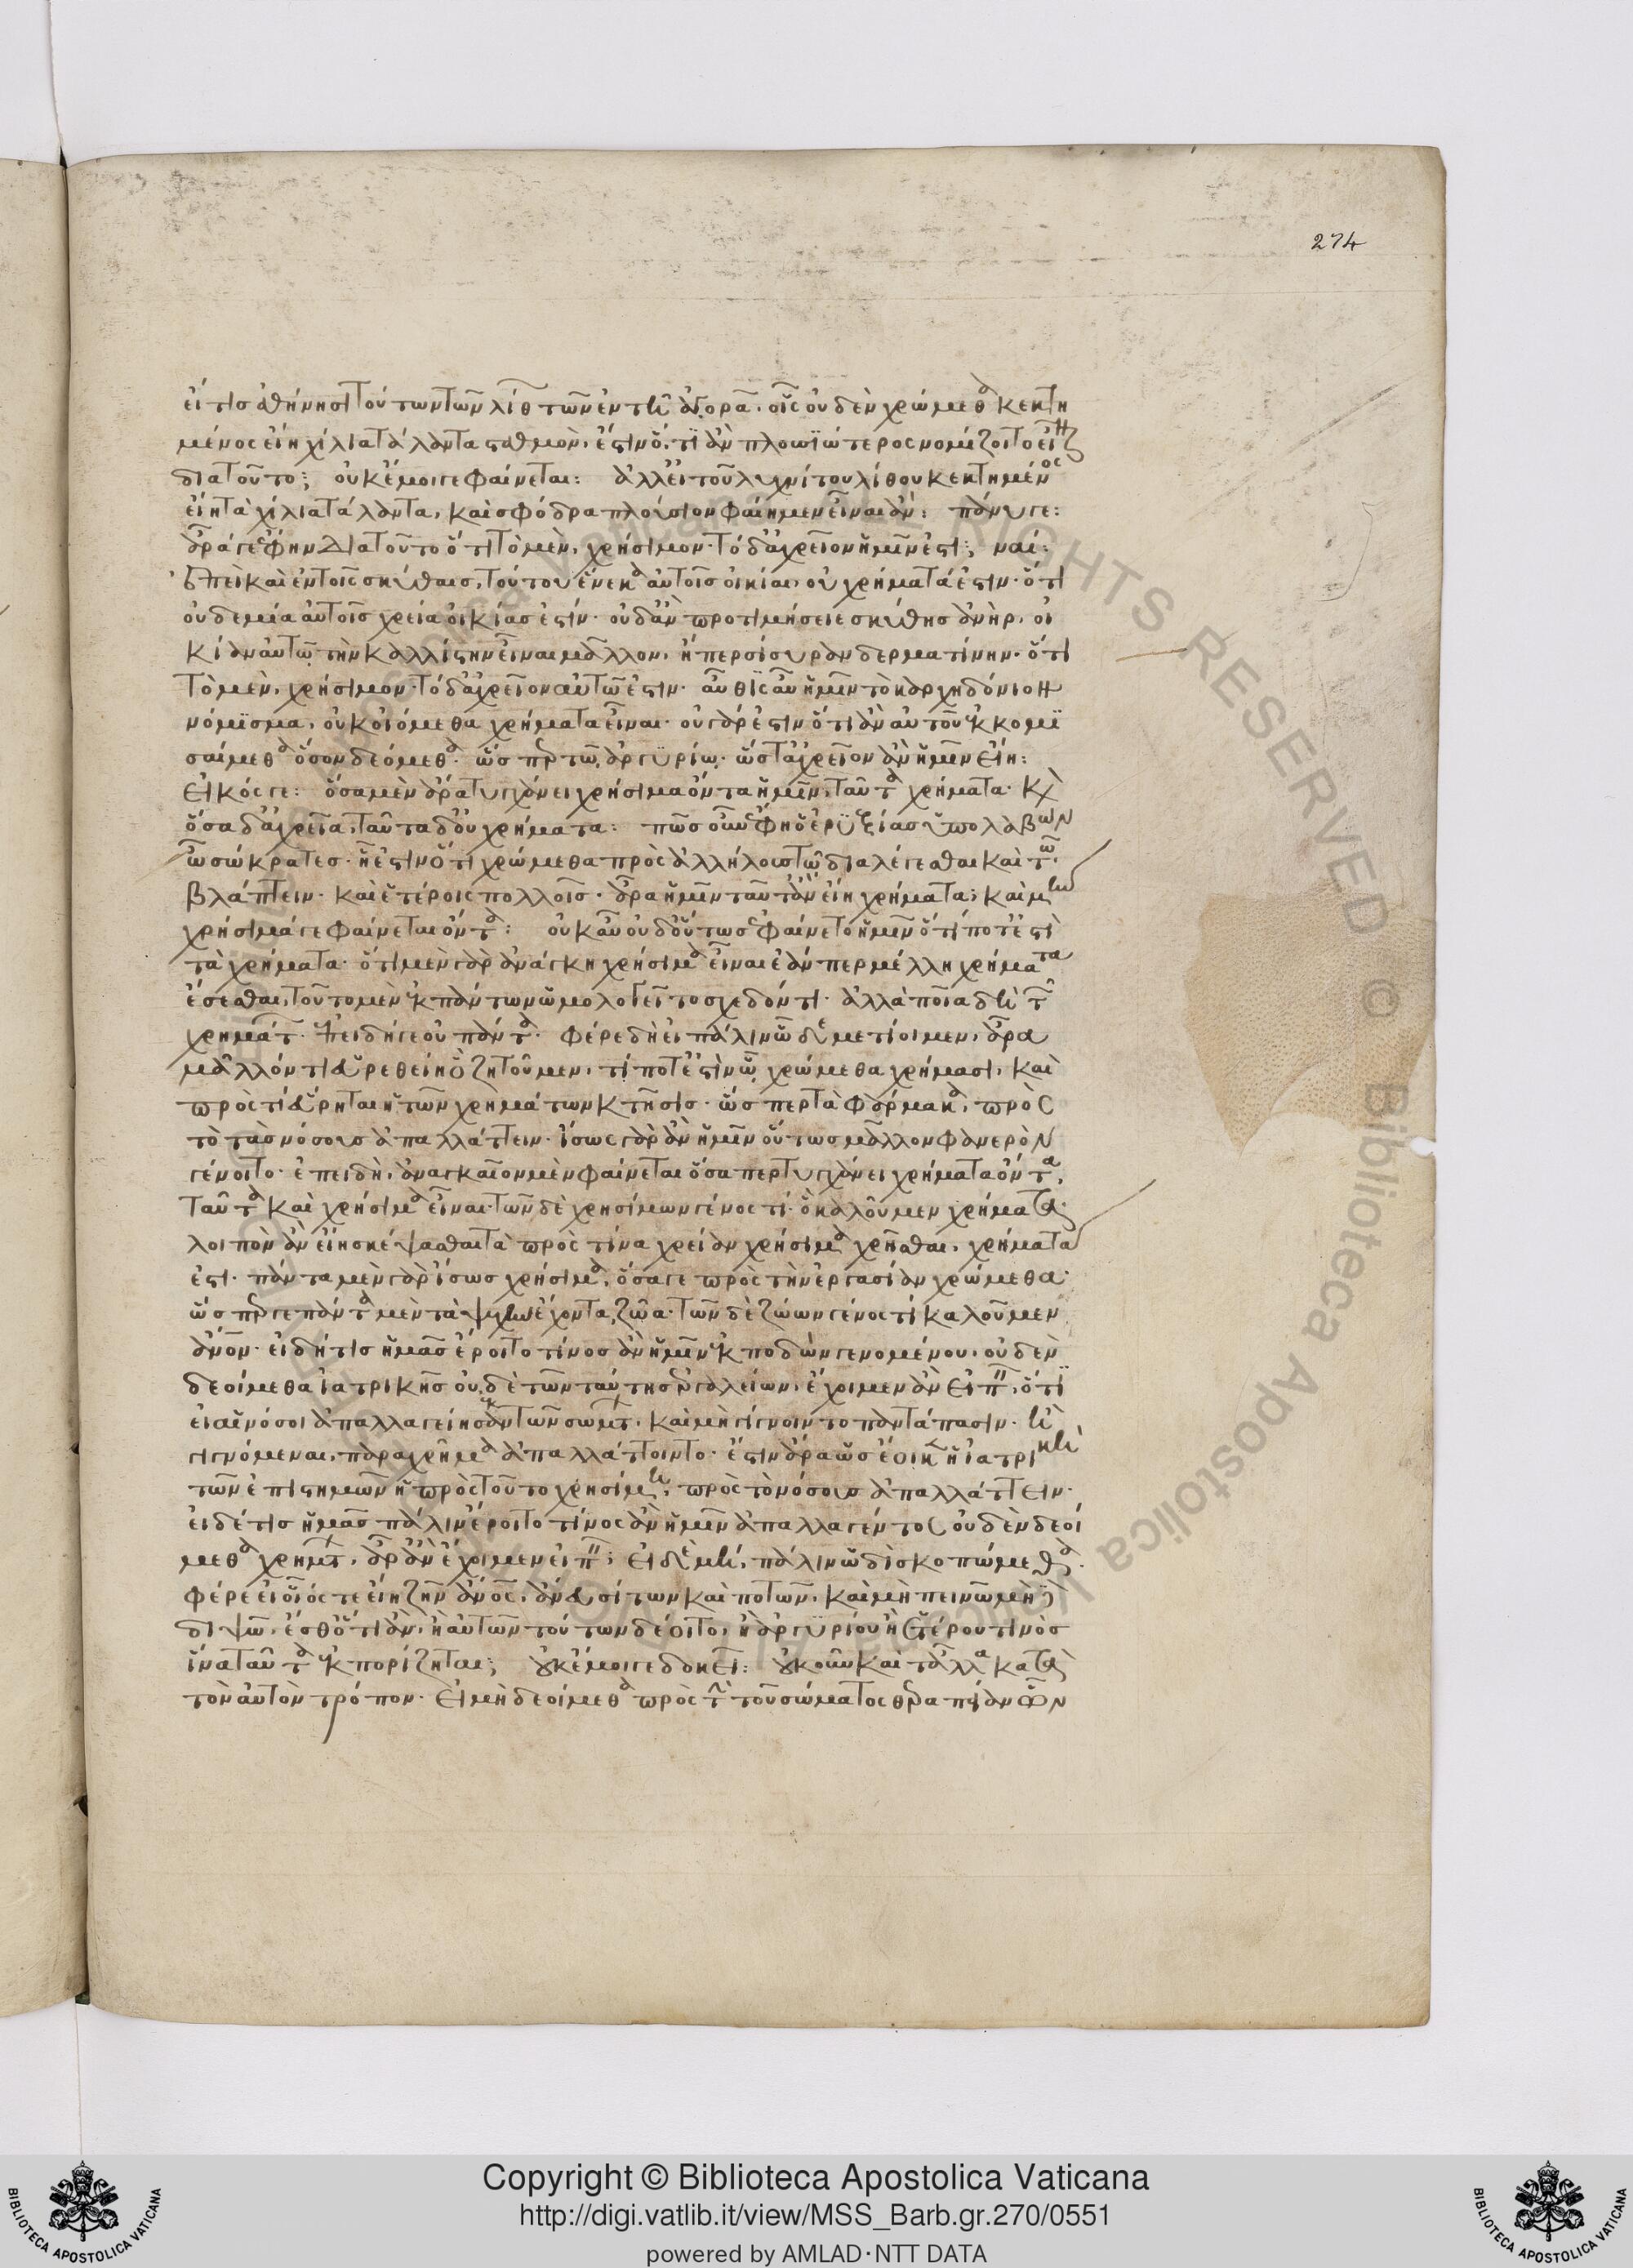 274
εἴ τις ἀθήνησι τούτων τῶν λίθ τῶν ἐν τῆ ἀγορᾶ. οἷς οὐδὲν χρώμεθα κεκτη
μένος εἴη χίλια τάλαντα σταθμὸν, ἔστιν ὅ, τι ἂν πλουσιώτερος νομίζοιτο εἶν
διατοῦτο; οὐκ ἔμοιγε φαίνεται: ἀλλ' εἰ τοῦ λυχνίτου λίθου κεκτημένος
εἴη τὰ χίλια τάλαντα, καὶ σφόδρα πλούσιον φαίημεν εἶναι ἄν: πάνυ γε:
ἆρά γε ἔφην διατοῦτο ὅτι τὸ μὲν, χρήσιμον· τὸ δ' ἀχρεῖον ἡμῖν ἐστι; ναί:
ἐπεὶ καὶ ἐν τοῖς σκύθαις, τούτου ἕνεκα αὐτοῖς οἰκίαι, οὐ χρήματά ἐστιν· ὅτι
οὐδεμία αὐτοῖς χρεία οἰκίας ἐστίν· οὐδ' ἂν προτιμήσειε σκύθης ἀνὴρ, οἰ
κίαν αὐτῶ τὴν καλλίστην εἶναι μᾶλλον, ἤπερ σισύραν δερματίνην· ὅτι
τὸ μὲν, χρήσιμον· τὸ δ' ἀχρεῖον αὐτῶ ἐστιν· αὖθις αὖ ἡμῖν τὸ καρχηδόνιον
νόμισμα, οὐκ οἰόμεθα χρήματα εἶναι· οὐ γάρ ἐστιν ὅτι ἂν αὐτοῦ ἐκκομι
σαίμεθα ὅσον δεόμεθα· ὥσπερ τῶ ἀργυρίω· ὥστ' ἀχρεῖον ἂν ἡμῖν εἴη:
εἰκός γε: ὅσα μὲν ἄρα τυγχάνει χρήσιμα ὄντα ἡμῖν, ταῦτα χρήματα· καὶ
ὅσα δ' ἀχρεῖα, ταῦτα δ' οὐ χρήματα: πῶς οὖν ἔφη ὁ ἐρυξίας ὑπολαβὼν
ὦ σώκρατες· ἦ ἔστιν ὅτι χρώμεθα πρὸς ἀλλήλους τῶ διαλέγεσθαι καὶ τῶ
βλάπτειν· καὶ ἑτέροις πολλοῖς· ἆρα ἡμῖν ταῦτ' ἂν εἴη χρήματα; καὶ μὴν
χρήσιμά γε φαίνεται ὄντα: οὐκ αὖ οὐδ' οὕτως ἐφαίνετο ἡμῖν ὅτί ποτ' ἐστὶ
τὰ χρήματα· ὅτι μὲν γὰρ ἀνάγκη χρήσιμα εἶναι ἐάνπερ μέλλη χρήματα
ἔσεσθαι, τοῦτο μὲν ἐκ πάντων ὡμολογεῖτο σχεδόν τι· ἀλλὰ ποῖα δὴ τῶν
χρημάτ· ἐπειδή γε οὐ πάντα· φέρε δὴ εἰ πάλιν ὧδε μετίοιμεν, ἆρα
μᾶλλον τι εὑρεθείη ὃ ζητοῦμεν, τί ποτ' ἐστὶν ὧ χρώμεθα χρήμασι, καὶ
πρὸς τί εὕρηται ἡ τῶν χρημάτων κτῆσις· ὥσπερ τὰ φάρμακα, πρὸς
τὸ τὰς νόσους ἀπαλλάττειν· ἴσως γὰρ ἂν ἡμῖν οὕτως μᾶλλον φανερὸν
γένοιτο· ἐπειδὴ, ἀναγκαῖον μὲν φαίνεται ὅσα περ τυγχάνει χρήματα ὄντα,
ταῦτα καὶ χρήσιμα εἶναι· τῶν δὲ χρησίμων γένος τί· ὃ καλοῦμεν χρήματα·
λοιπὸν ἂν εἴη σκέψασθαι τὰ πρὸς τίνα χρείαν χρήσιμα χρῆσθαι, χρήματά
ἐστι· πάντα μὲν γὰρ ἴσως χρήσιμα, ὅσα γε πρὸς τὴν ἐργασίαν χρώμεθα·
ὥσπερ γε πάντα μὲν τὰ ψυχὴν ἔχοντα, ζῶα· τῶν δὲ ζώων γένος τί καλοῦμεν
ἄνον· εἰ δή τις ἡμᾶς ἔροιτο τίνος ἂν ἡμῖν ἐκποδὼν γενομένου, οὐδὲν
δεοίμεθα ἰατρικῆς οὐδὲ τῶν ταύτης ἐργαλείων, ἔχοιμεν ἂν εἰπ, ὅτι
εἰ αἱ νόσοι ἀπαλλαγείησαν ἐκ τῶν σωμάτ, καὶ μὴ γίγνοιντο παντάπασιν· ἢ
γιγνόμεναι, παραχρῆμα ἀπαλλάττοιντο· ἔστιν ἄρα ὡς ἔοικεν ἡ ἰατρικὴ
τῶν ἐπιστημῶν ἡ πρὸς τοῦτο χρησίμη, πρὸς τὸ νόσους ἀπαλλάττειν·
εἰ δέ τις ἡμᾶς πάλιν ἔροιτο τίνος ἂν ἡμῖν ἀπαλλαγέντος οὐδὲν δεοί
μεθα χρημάτ, ἆρ' ἂν ἔχοιμεν εἰπ; εἰ δὲ μὴ, πάλιν ὡδὶ σκοπώμεθα·
φέρε εἰ οἷός τε εἴη ζῆν ἄνος, ἄνευ σίτων καὶ ποτῶν, καὶ μὴ πεινῶ μὴ δὲ
διψῶ, ἔσθ' ὅτι ἂν, ἢ αὐτῶν τούτων δέοιτο, ἢ ἀργυρίου ἢ ἑτέρου τινὸς
ἵνα ταῦτα ἐκπορίζηται; οὐκ ἔμοιγε δοκεῖ: οὐκοῦν καὶ τἄλλα κατὰ
τὸν αὐτὸν τρόπον· εἰ μὴ δεοίμεθα πρὸς τὴν τοῦ σώματος θεραπείαν ὧν
Copyright © Biblioteca Apostolica Vaticana
http://digi.vatlib.it/view/MSS_Barb.gr.270/0551
powered by AMLAD·NTT DATA
BIBLIOTECA APOSTOLICA VATICANA
BIBLIOTECA APOSTOLICA VATICANA